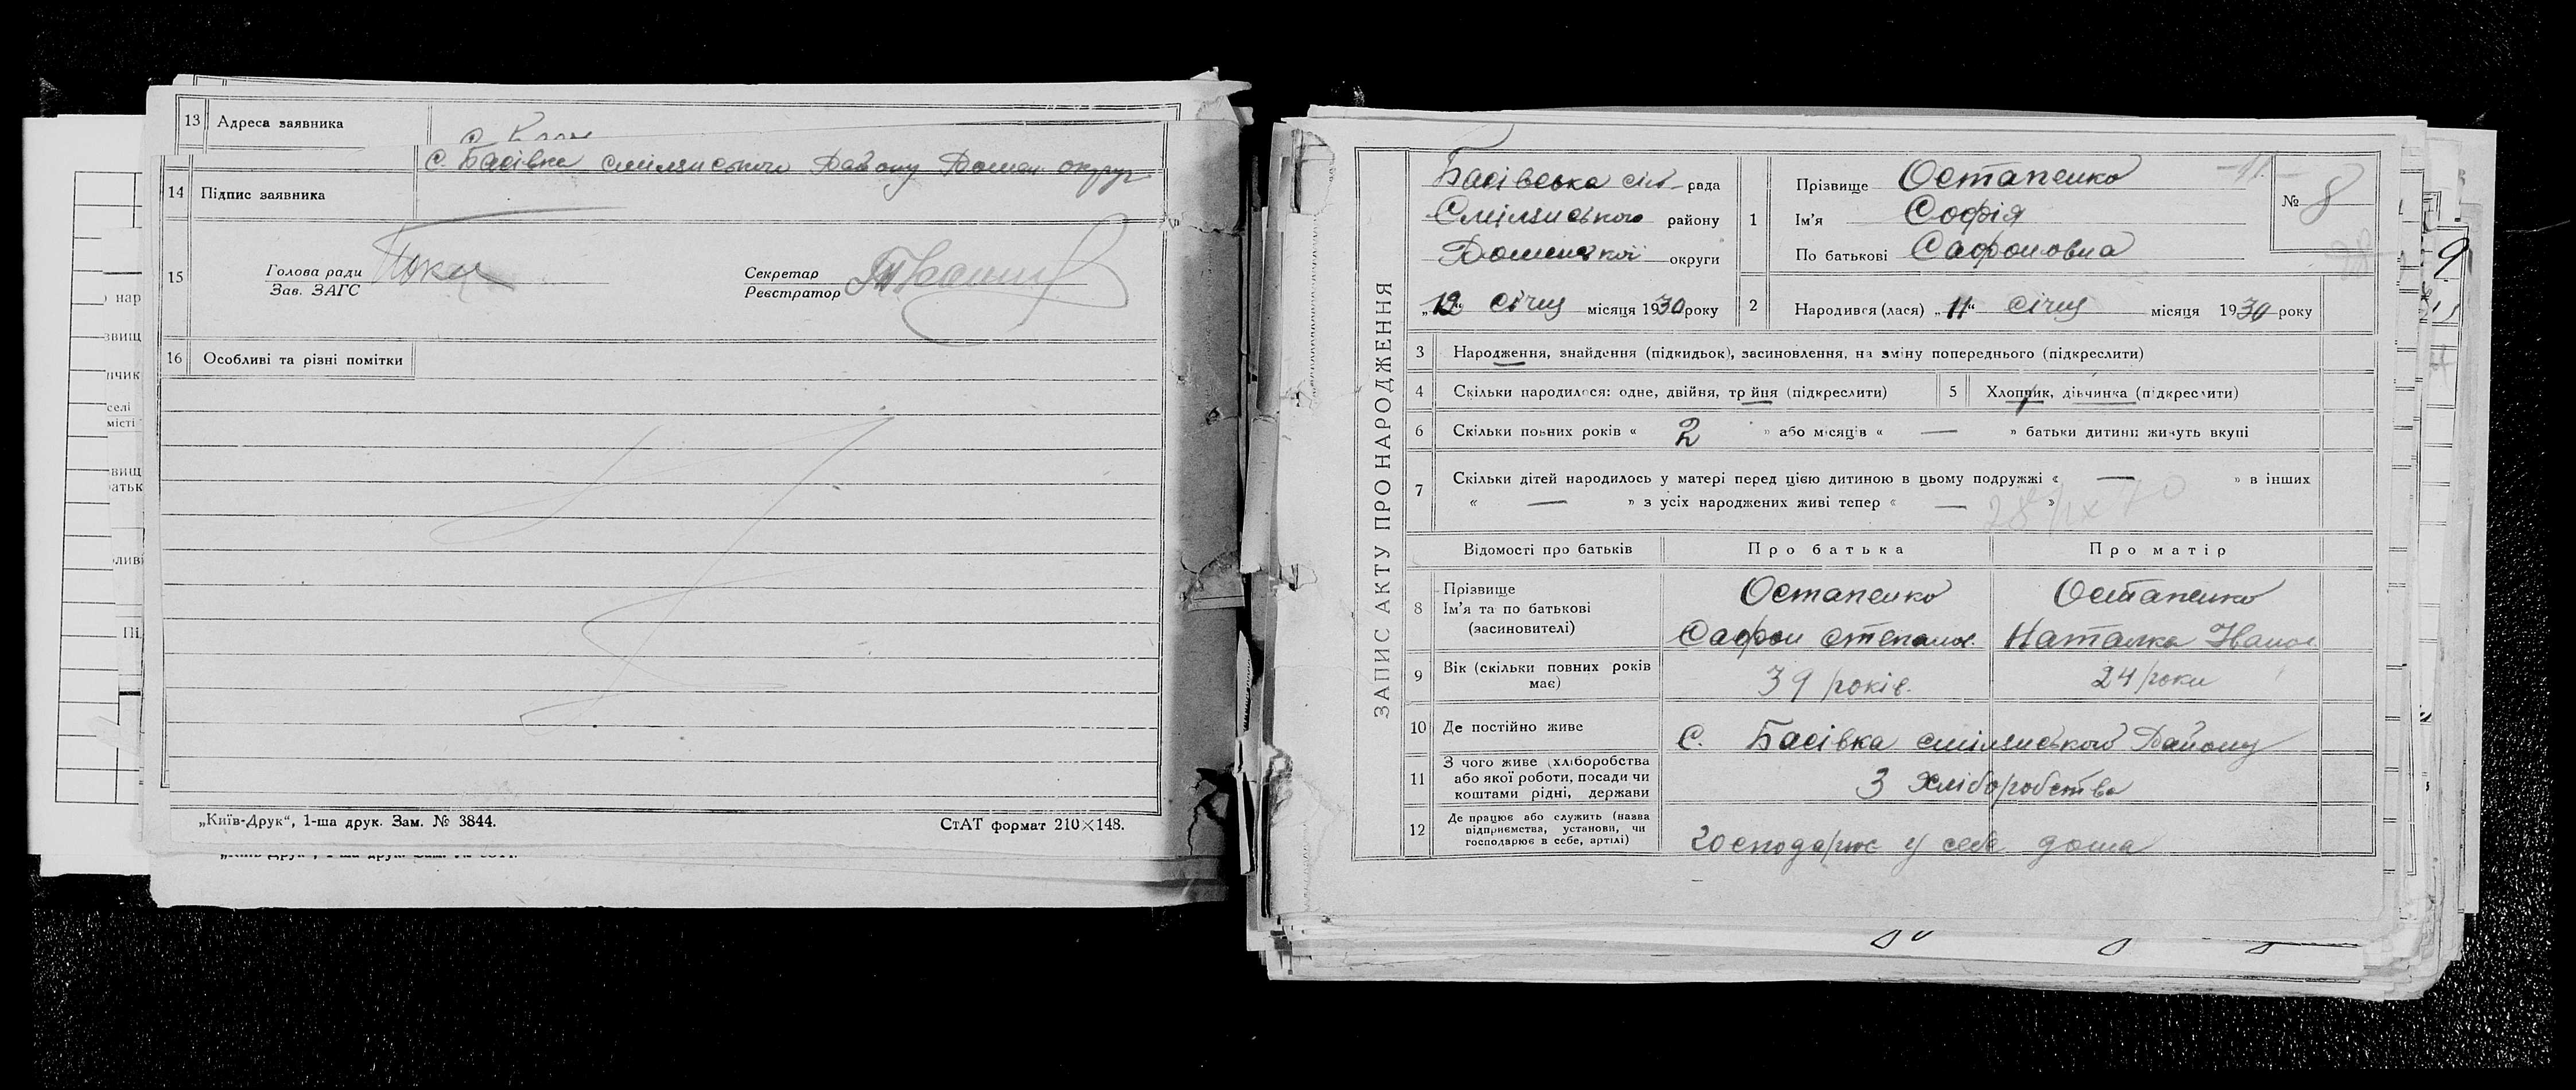 13 Адреса заявника
с. Басівка смілянського Району Ромен округ
14 Підпис заявника
15 Голова ради
Зав. ЗАГС
Секретар
Реєстратор
16 Особливі та різні помітки
„Київ-Друк“, 1-ша друк. Зам. № 3844.
СтАТ формат 210×148.
нар
звищ
пчик
селі
місті
вищ
атьк
ЗАПИС АКТУ ПРО НАРОДЖЕННЯ
Басівська сіл рада
Смілянського району
Роменської округи
„12“ січня місяця 1930 року
1 Прізвище Остапенко
Ім’я Софія
По батькові Сафоновна
№ 8
2 Народився (лася) „11“ січня місяця 1930 року
3 Народження, знайдення (підкидьок), засиновлення, на зміну попереднього (підкреслити)
4 Скільки народилося: одне, двійня, трійня (підкреслити)
5 Хлопчик, дівчинка (підкреслити)
6 Скільки повних років « 2 » або місяців « — » батьки дитини живуть вкупі
7 Скільки дітей народилось у матері перед цією дитиною в цьому подружжі « — » в інших
« — » з усіх народжених живі тепер « — »
28/IX 70
Відомості про батьків
Про батька
Про матір
8 Прізвище
Ім’я та по батькові
(засиновителі)
Остапенко
Сафон степанов.
Остапенко
Наталка Іванов
9 Вік (скільки повних років має)
39 років.
24 роки
10 Де постійно живе
С. Басівка смілянського Району
11 З чого живе (хліборобства
або якої роботи, посади чи
коштами рідні, держави
З Хліборобства
12 Де працює або служить (назва
підприємства, установи, чи
господарює в себе, артілі)
господарює у себе дома
9